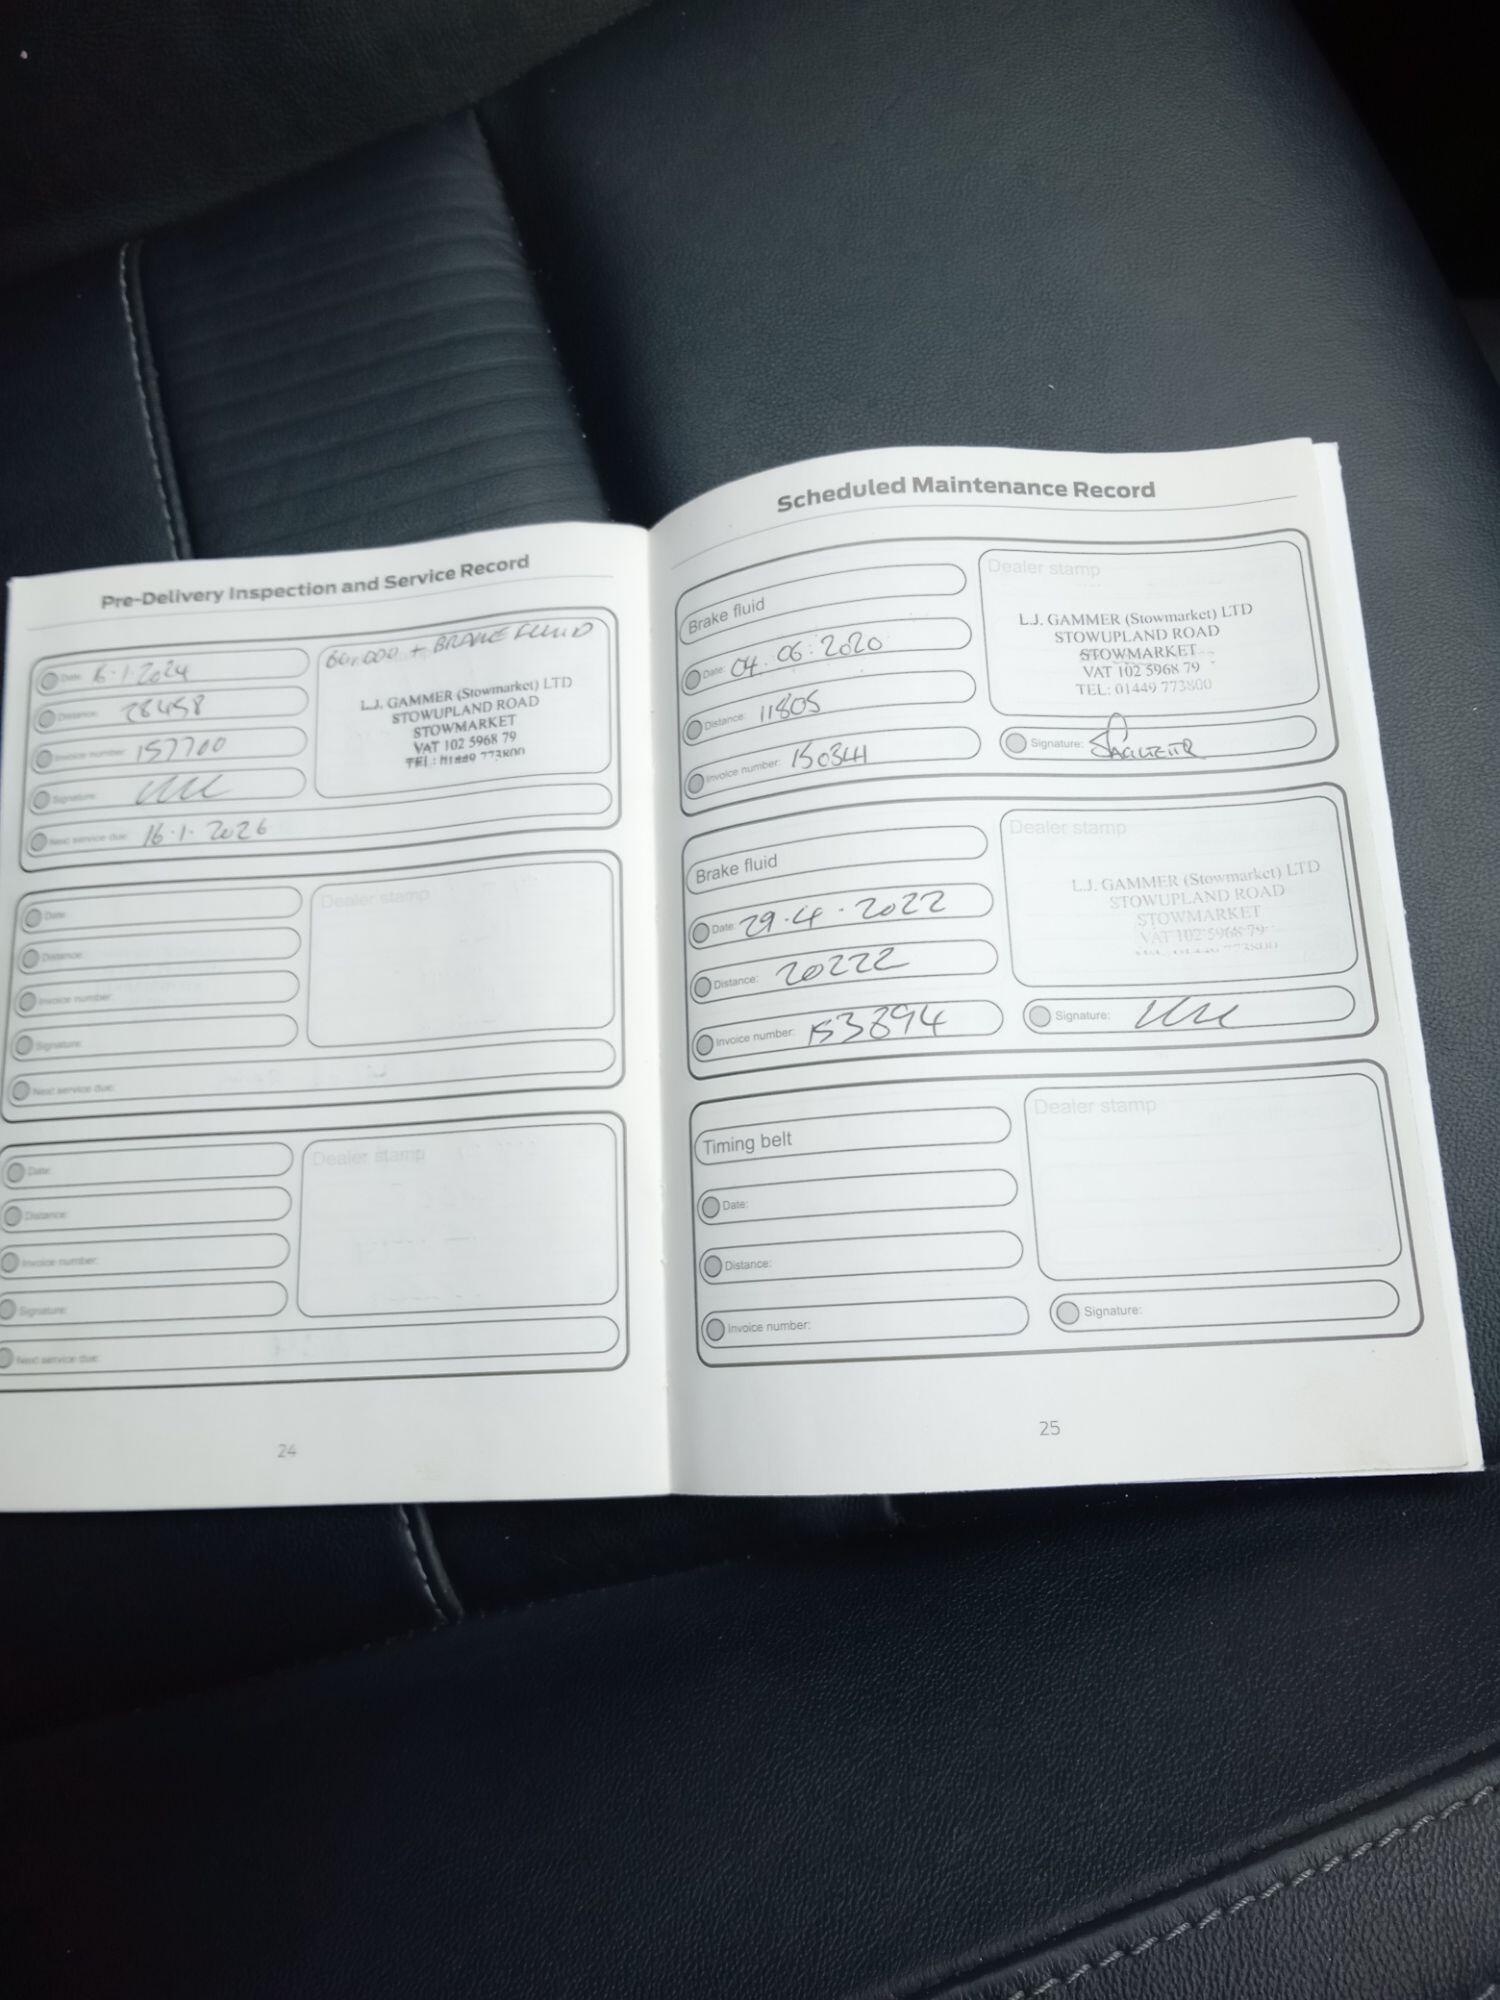 Pre-Delivery Inspection and Service Record
Date: 16·1·2024
Distance: 28458
Invoice number: 157700
Signature:
Next service due: 16·1·2026
60,000 + BRAKE FLUID
L.J. GAMMER (Stowmarket) LTD
STOWUPLAND ROAD
STOWMARKET
VAT 102 5968 79
TEL: 01449 773800
Date:
Distance:
Invoice number:
Signature:
Next service due:
Dealer stamp
Date:
Distance:
Invoice number:
Signature:
Next service due:
Dealer stamp
24
Scheduled Maintenance Record
Brake fluid
Date: 04.06.2020
Distance: 11805
Invoice number: 150344
Dealer stamp
L.J. GAMMER (Stowmarket) LTD
STOWUPLAND ROAD
STOWMARKET
VAT 102 5968 79
TEL: 01449 773800
Signature:
Brake fluid
Date: 29·4·2022
Distance: 20222
Invoice number: 153894
Dealer stamp
L.J. GAMMER (Stowmarket) LTD
STOWUPLAND ROAD
STOWMARKET
VAT 102 5968 79
Signature:
Timing belt
Date:
Distance:
Invoice number:
Dealer stamp
Signature:
25